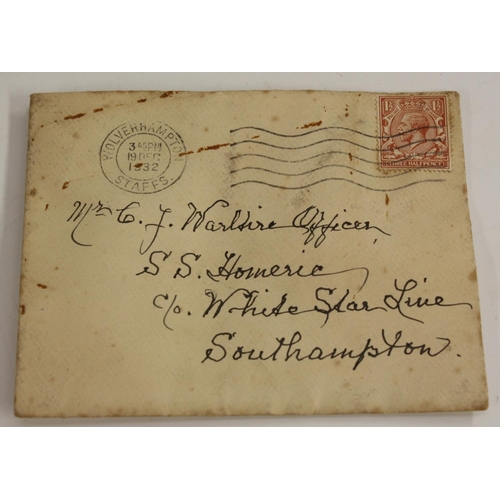 WOLVERHAMPTON
3 45 PM
19 DEC
1932
STAFFS.
1½ 1½
THREE HALF PENCE
Mr C. J. Warhire Officer
S S. Homeric
c/o. White Star Line
Southampton.